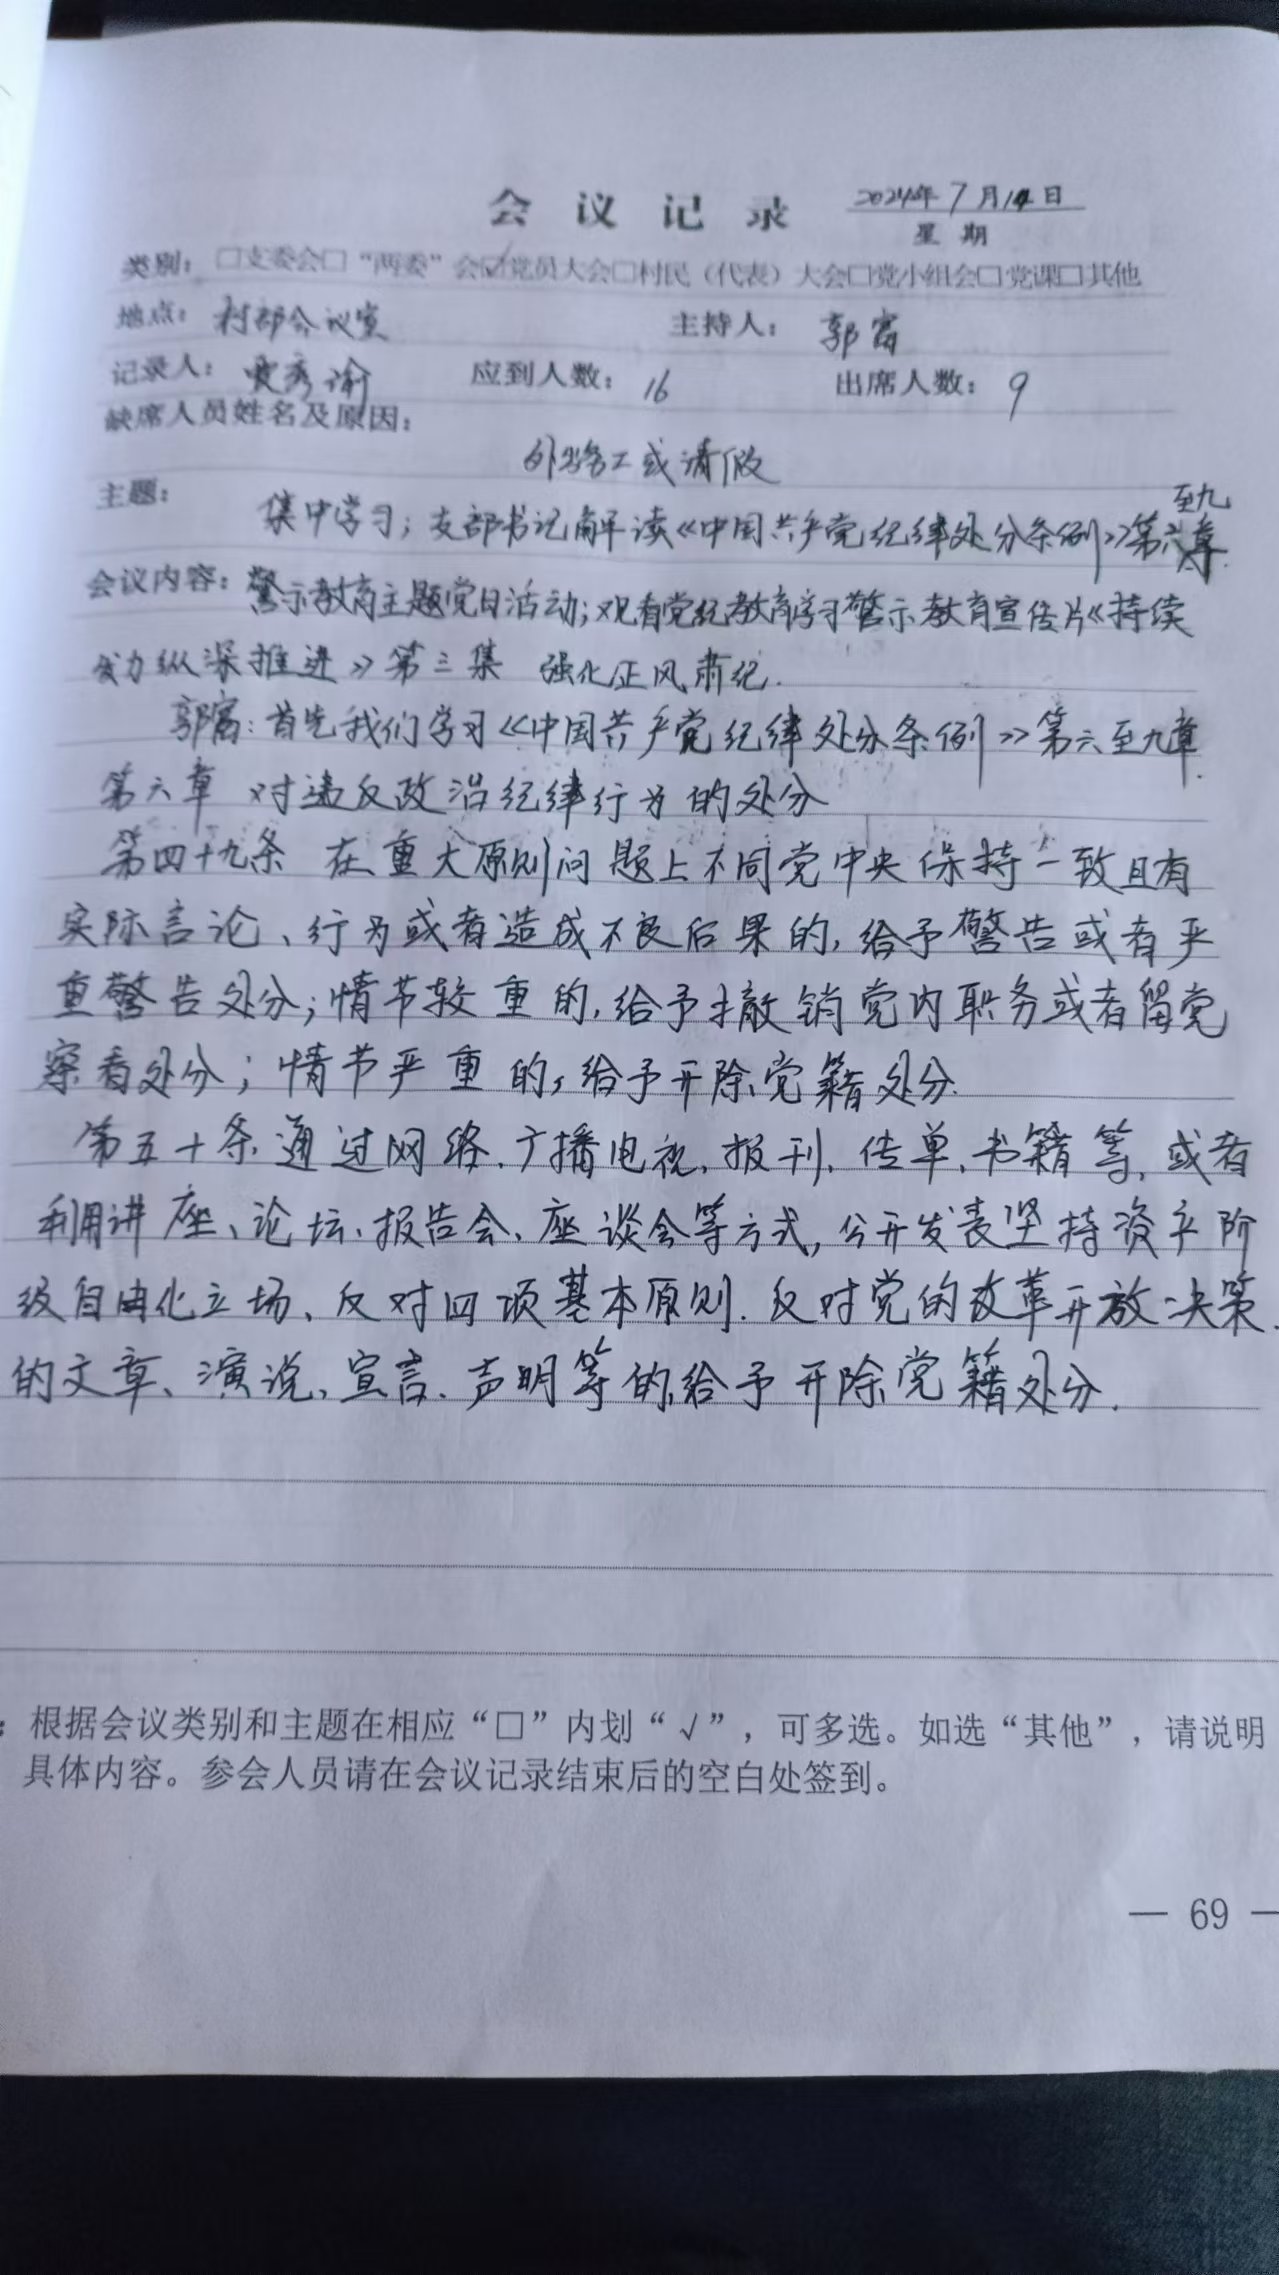 会议记录 2024年7月14日
星期
类别：□支委会□“两委”会☑党员大会□村民（代表）大会□党小组会□党课□其他
地点：村部会议室 主持人：郭富
记录人：秀谕 应到人数：16 出席人数：9
缺席人员姓名及原因：
外务工或请假
至九
主题：集中学习；支部书记解读《中国共产党纪律处分条例》第六章.
会议内容：警示教育主题党日活动；观看党纪教育学习警示教育宣传片《持续
发力纵深推进》第三集 强化正风肃纪.
郭富：首先我们学习《中国共产党纪律处分条例》第六至九章.
第六章 对违反政治纪律行为的处分
第四十九条 在重大原则问题上不同党中央保持一致且有
实际言论、行为或者造成不良后果的，给予警告或者严
重警告处分；情节较重的，给予撤销党内职务或者留党
察看处分；情节严重的，给予开除党籍处分.
第五十条 通过网络、广播电视、报刊、传单、书籍等，或者
利用讲座、论坛、报告会、座谈会等方式，公开发表坚持资产阶
级自由化立场、反对四项基本原则.反对党的改革开放决策.
的文章、演说、宣言、声明等的,给予开除党籍处分.
：根据会议类别和主题在相应“□”内划“√”，可多选。如选“其他”，请说明
具体内容。参会人员请在会议记录结束后的空白处签到。
— 69 —